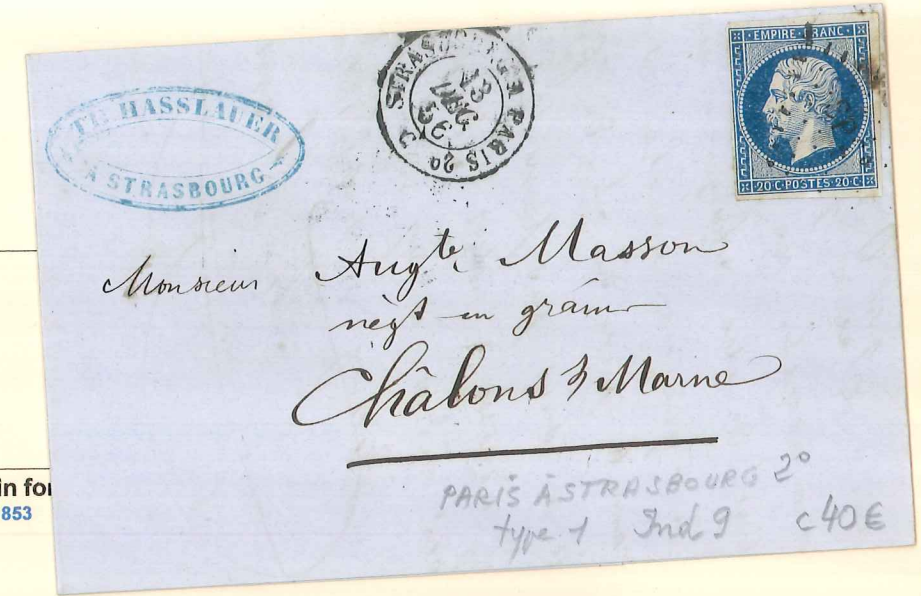 HASSLAUER
A STRASBOURG
STRASBOURG A PARIS 2º
18
DEC
56
EMPIRE FRANC
20·C·POSTES·20·C
Monsieur Augte Masson
négt en grains
Châlons s/ Marne
PARIS A STRASBOURG 2º
type 1 Ind 9 c 40 €
in for
853